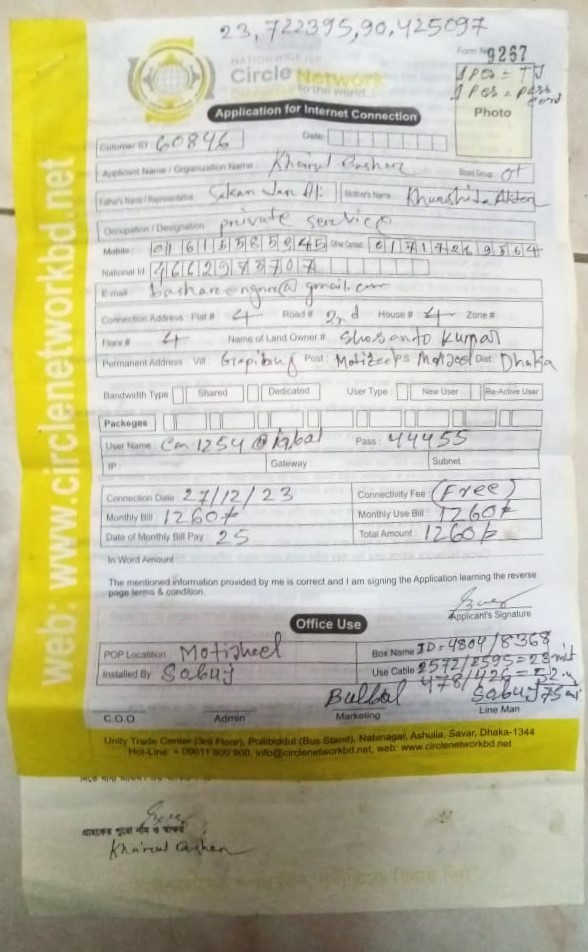 23,722395,90,425097
NATIONWIDE ISP
Circle Network
to the world
Form No 9267
1 Pes = TJ
1 Pes = Pass
Photo
Application for Internet Connection
Cutomer ID 60846 Date:
Applicant Name / Organization Name : Khairul Bashar Blood Group: O+
Father's Name / Representative Mother's Name Khurshida Akter
Occupation / Designation : private service
Mobile : Other Contact :
National Id :
E-mail gmail.com
Connection Address : Flat # 4 Road # 2nd House # 4 Zone #
Floor # 4 Name of Land Owner # Shosanto Kumar
Permanent Address Vill Post : PS Dist Dhaka
Bandwidth Type Shared Dedicated User Type : New User Re-Active User
Packages
User Name : Cn-1254@iqbal Pass : 44455
IP : Gateway : Subnet :
Connection Date : 27/12/23 Connectivity Fee : (Free)
Monthly Bill : 1260/= Monthly Use Bill : 1260/=
Date of Monthly Bill Pay : 25 Total Amount : 1260/=
In Word Amount :
The mentioned information provided by me is correct and I am signing the Application learning the reverse
page terms & condition.
Applicant's Signature
Office Use
POP Location : Motijheel Box Name ID=4804/8368
Installed By : Sabuj Use Cable 2572/2595=23 mit
478/426=52
Bulbul Sabuj 75
C.O.O Admin Marketing Line Man
Unity Trade Center (3rd Floor), Pollibiddut (Bus Stand), Nabinagar, Ashulia, Savar, Dhaka-1344
Hot-Line: + 09611 800 900, info@circlenetworkbd.net, web: www.circlenetworkbd.net
web: www.circlenetworkbd.net
গ্রাহকের পুরো নাম ও স্বাক্ষর
Khairul Bashar